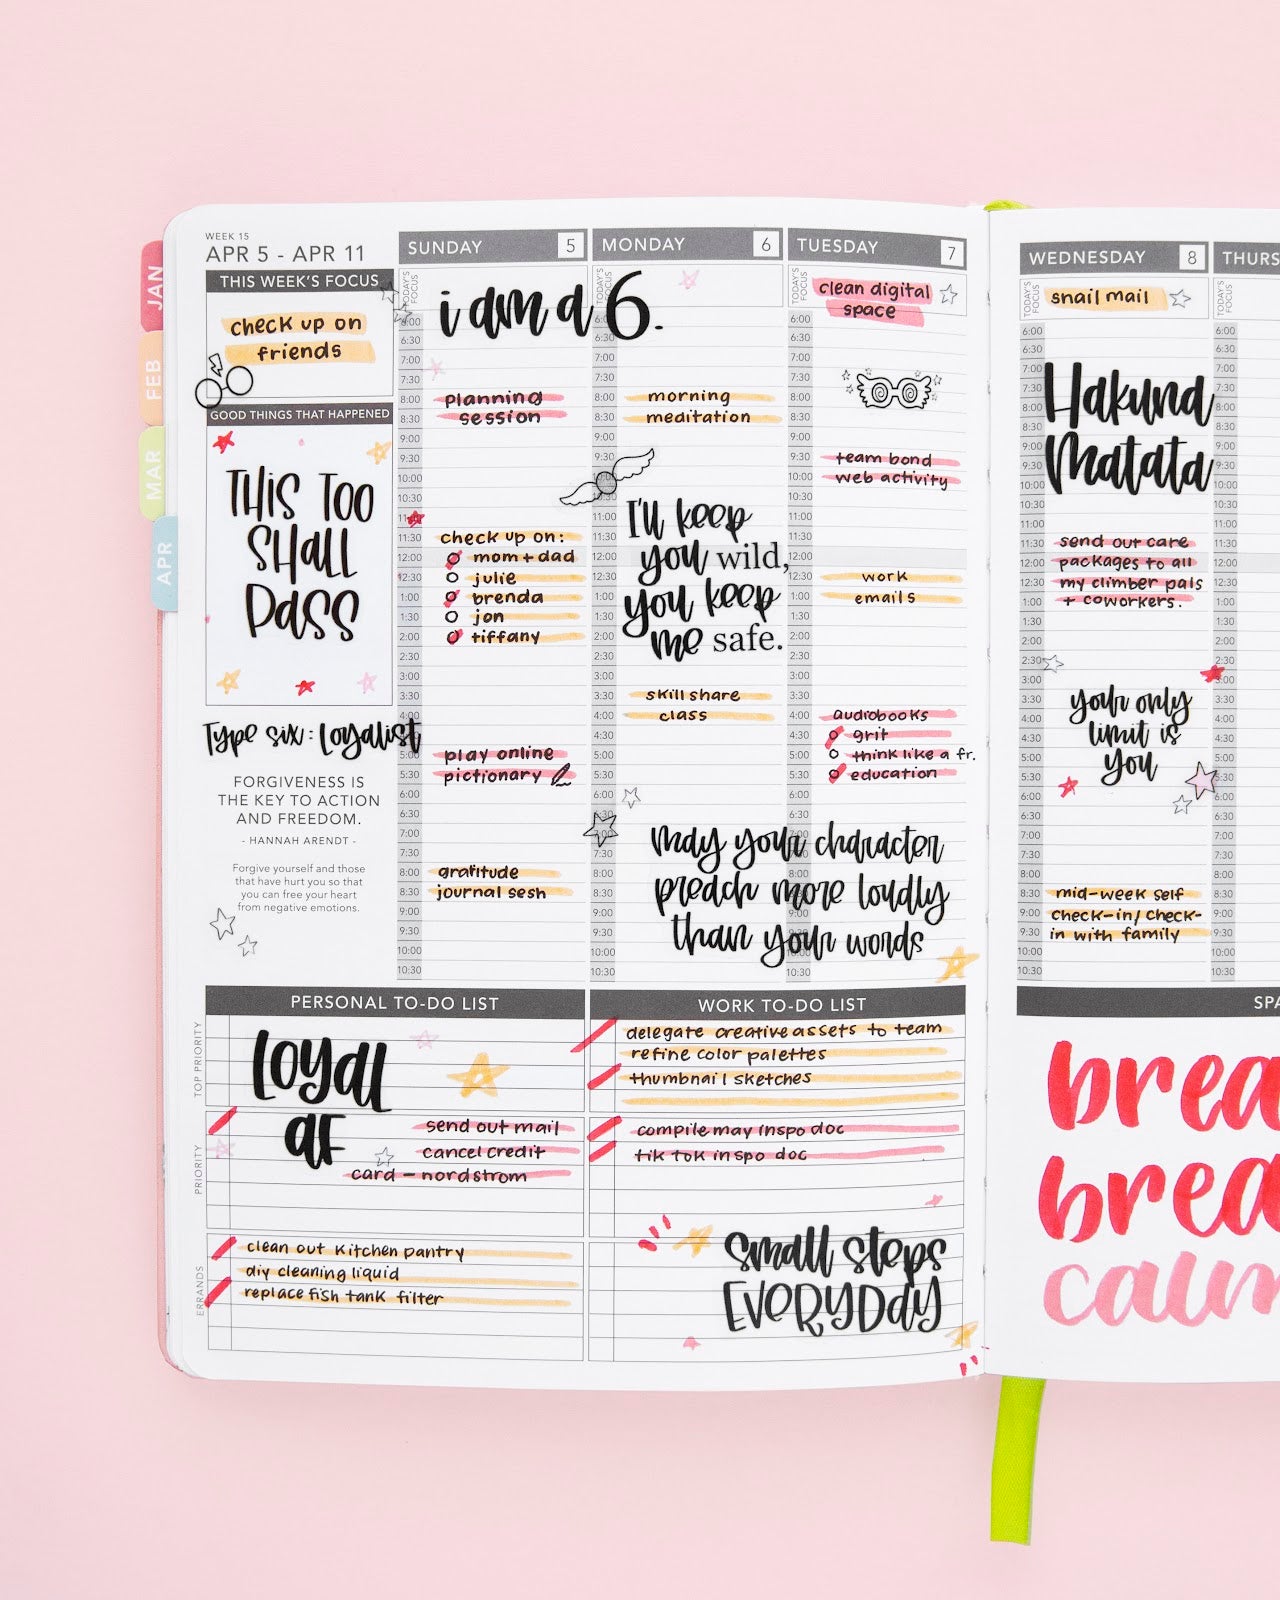 WEEK 15
APR 5 - APR 11
THIS WEEK'S FOCUS
check up on
friends
GOOD THINGS THAT HAPPENED
THIS TOO
SHALL
PASS
Type six: Loyalist
FORGIVENESS IS
THE KEY TO ACTION
AND FREEDOM.
- HANNAH ARENDT -
Forgive yourself and those
that have hurt you so that
you can free your heart
from negative emotions.
JAN
FEB
MAR
APR
SUNDAY 5
TODAY'S FOCUS
i am a 6.
6:00
6:30
7:00
7:30
8:00 planning
8:30 session
9:00
9:30
10:00
10:30
11:30 check up on:
12:00 mom + dad
12:30 julie
1:00 brenda
1:30 jon
2:00 tiffany
2:30
3:00
3:30
4:00
5:00 play online
5:30 pictionary
6:00
6:30
7:00
7:30
8:00 gratitude
8:30 journal sesh
9:00
9:30
10:00
10:30
MONDAY 6
TODAY'S FOCUS
6:00
6:30
7:00
7:30
8:00 morning
8:30 meditation
9:00
9:30
10:30
11:00 I'll keep
11:30
12:00 you wild,
12:30
1:00 you keep
1:30
2:00 me safe.
2:30
3:00
3:30 skill share
4:00 class
4:30
5:00
5:30
6:00
6:30
7:00
7:30
8:00
8:30
9:00
9:30
10:00
10:30
may your character
preach more loudly
than your words
TUESDAY 7
TODAY'S FOCUS
clean digital
space
6:00
6:30
7:00
7:30
8:00
8:30
9:00
9:30 team bond
10:00 web activity
10:30
11:00
11:30
12:00
12:30 work
1:00 emails
1:30
2:00
2:30
3:00
3:30
4:00 audiobooks
4:30 grit
5:00 think like a fr.
5:30 education
6:00
6:30
10:30
WEDNESDAY 8
TODAY'S FOCUS
snail mail
6:00
6:30
7:00
7:30
8:00
8:30
9:00
9:30
10:00
10:30
11:00
Hakuna
Matata
11:30 send out care
12:00 packages to all
12:30 my climber pals
1:00 + coworkers.
1:30
2:00
2:30
3:00
3:30
4:00
4:30
5:00
5:30
your only
limit is
you
6:00
6:30
7:00
7:30
8:00
8:30 mid-week self
9:00 check-in/check-
9:30 in with family
10:00
10:30
THURS
TODAY'S FOCUS
6:00
6:30
7:00
7:30
8:00
8:30
9:00
9:30
10:00
10:30
11:00
11:30
12:00
12:30
1:00
1:30
2:00
2:30
3:00
3:30
4:00
4:30
5:00
5:30
6:00
6:30
7:00
7:30
8:00
8:30
9:00
9:30
10:00
10:30
PERSONAL TO-DO LIST
TOP PRIORITY
Loyal
AF
PRIORITY
send out mail
cancel credit
card - nordstrom
ERRANDS
clean out kitchen pantry
diy cleaning liquid
replace fish tank filter
WORK TO-DO LIST
delegate creative assets to team
refine color palettes
thumbnail sketches
compile may inspo doc
tik tok inspo doc
small steps
EVERYDAY
SPA
brea
brea
calm